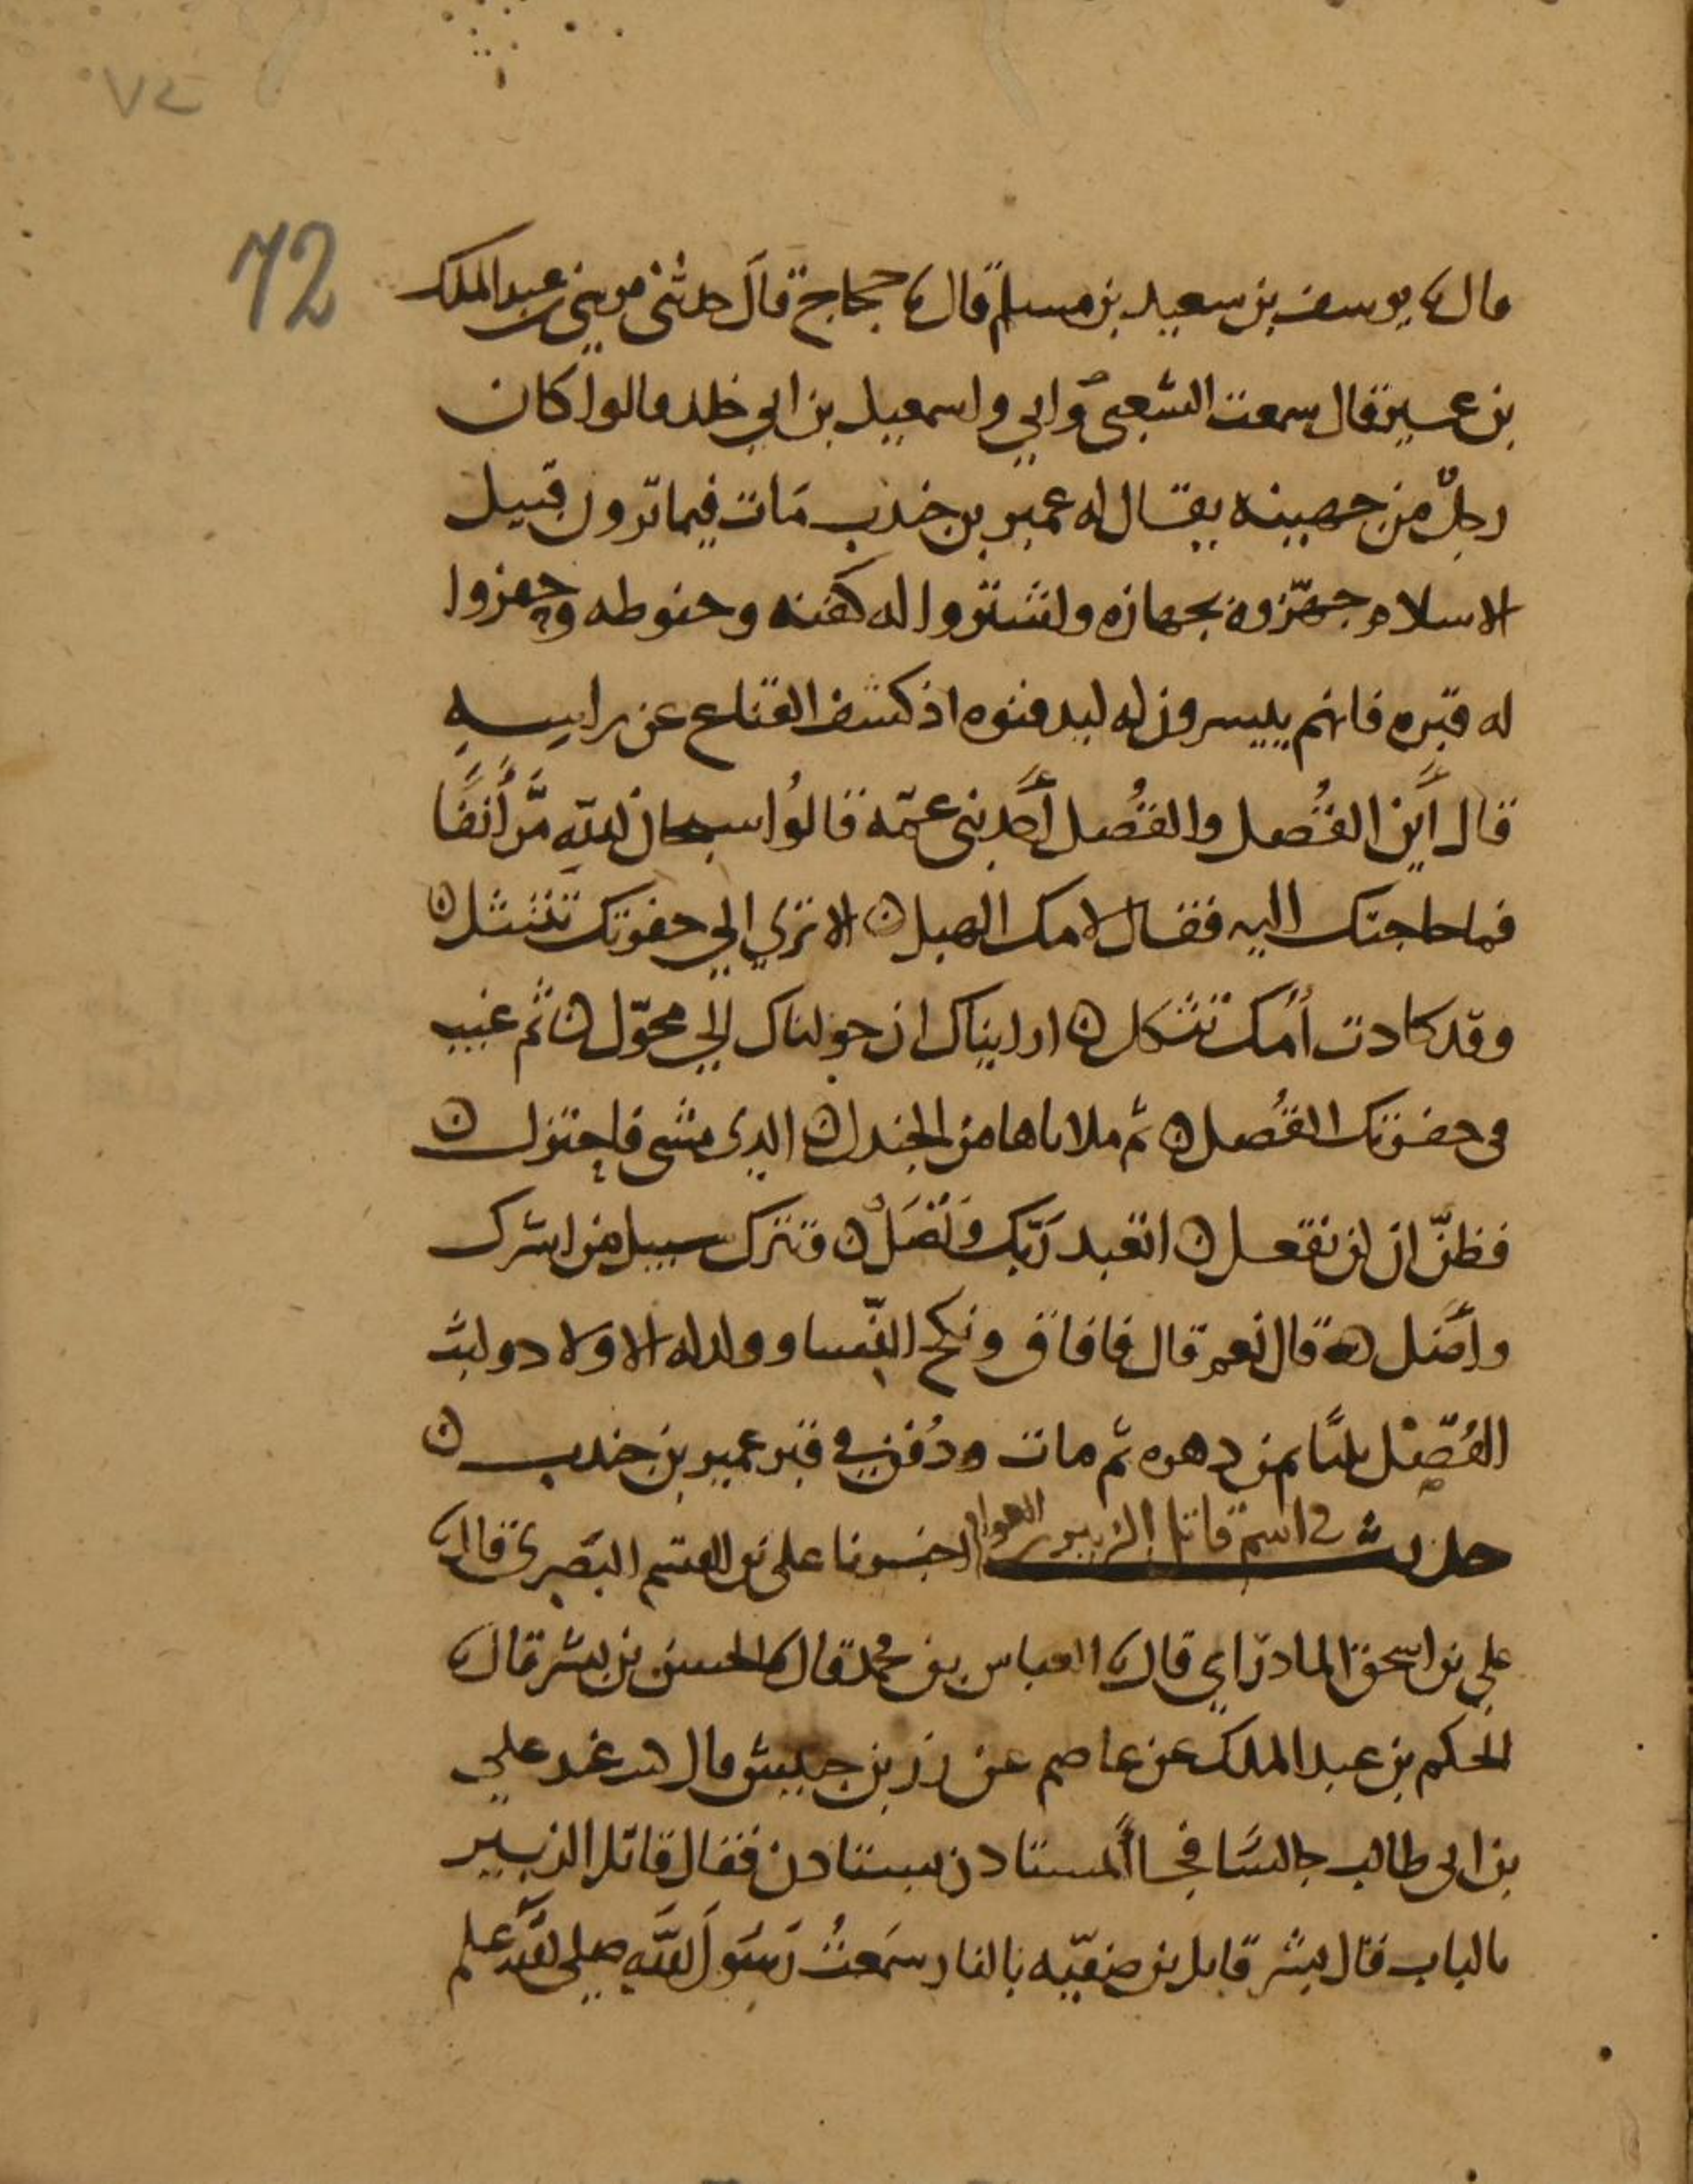 ٧٢
72
قال نا يوسف بن سعيد بن مسلم قال نا حجاج قال حدثنى موسى عبد الملك
بن عمير قال سمعت الشعبى وابي واسمعيل بن ابي خلد قالوا كان
رجلٌ من جهينه يقال له عمير بن جندب مَات فيما ترون قبيل
الاسلام جهّزوه بجهازه واشتروا له كفنه وحنوطه وحفروا
له قبره فانهم ييسرون له ليدفنوه اذ كشف القناع عن راسِه
قال أين القُصل والقُصل أحد بنى عمّه قالُوا سبحان اللهِ مَّر أنفًا
فما حاجتك اليه فقال لامك الهبل ه الا تري الي حفرتك تنتثل ه
وقد كادت أمك تثكل ه ارايتاك ان حولناك الى محوّل ه ثم غيب
فى حفرتك القُصل ه ثم ملاناها من الجندل ه الذى مشى فاحتزل ه
فظنّ ان لن نفعل ه اتعبد رَبّك وَتُصَلْ ه وتترك سبيل من اشرك
وأضل ه قال نعم قال فافاق ونكح النّسا وولد له الاولاد ولبث
القُصَل مليًّا من دهره ثم مات ودُفن في قبر عمير بن جندب ه
حديث في اسم قاتل الزبير بن العوام اخبرنا على بن القسم البَصرى قال نا
علي بن اسحق المادرَاي قال نا العباس بن محمد قال نا الحسن بن بشر قال نا
الحكم بن عبد الملك عن عاصم عن زر بن حبيش قال كنت عند علي
بن ابى طالب جالسًا فجا المستاذن يستاذن فقال قاتل الزبير
بالباب فقال بشر قاتل بن صفيّه بالنار سَمعتُ رَسُولَ اللهِ صلى الله علم